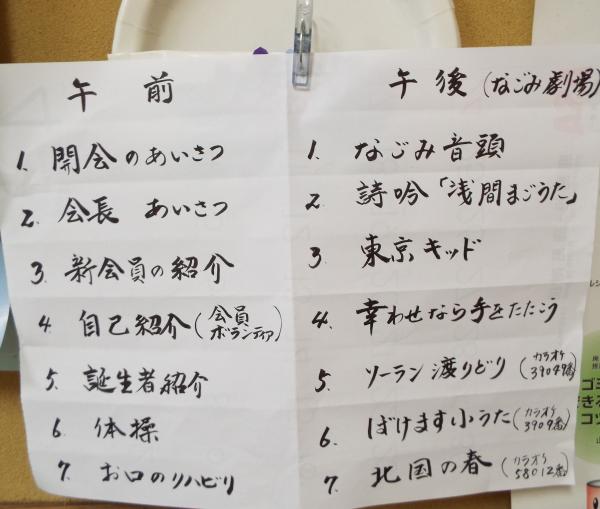 午前
1. 開会のあいさつ
2. 会長 あいさつ
3. 新会員の紹介
4. 自己紹介(会員 ボランティア)
5. 誕生者紹介
6. 体操
7. お口のリハビリ
午後(なごみ劇場)
1. なごみ音頭
2. 詩吟「浅間まごうた」
3. 東京キッド
4. 幸わせなら手をたたこう
5. ソーラン渡りどり(カラオケ 39049番)
6. ぼけます小うた(カラオケ 3909番)
7. 北国の春(カラオケ 58012番)
ゴミ
きる
コツ